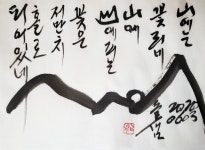 山에는
꽃피네
山에
山에피는
꽃은
저만치
홀로
피어있네